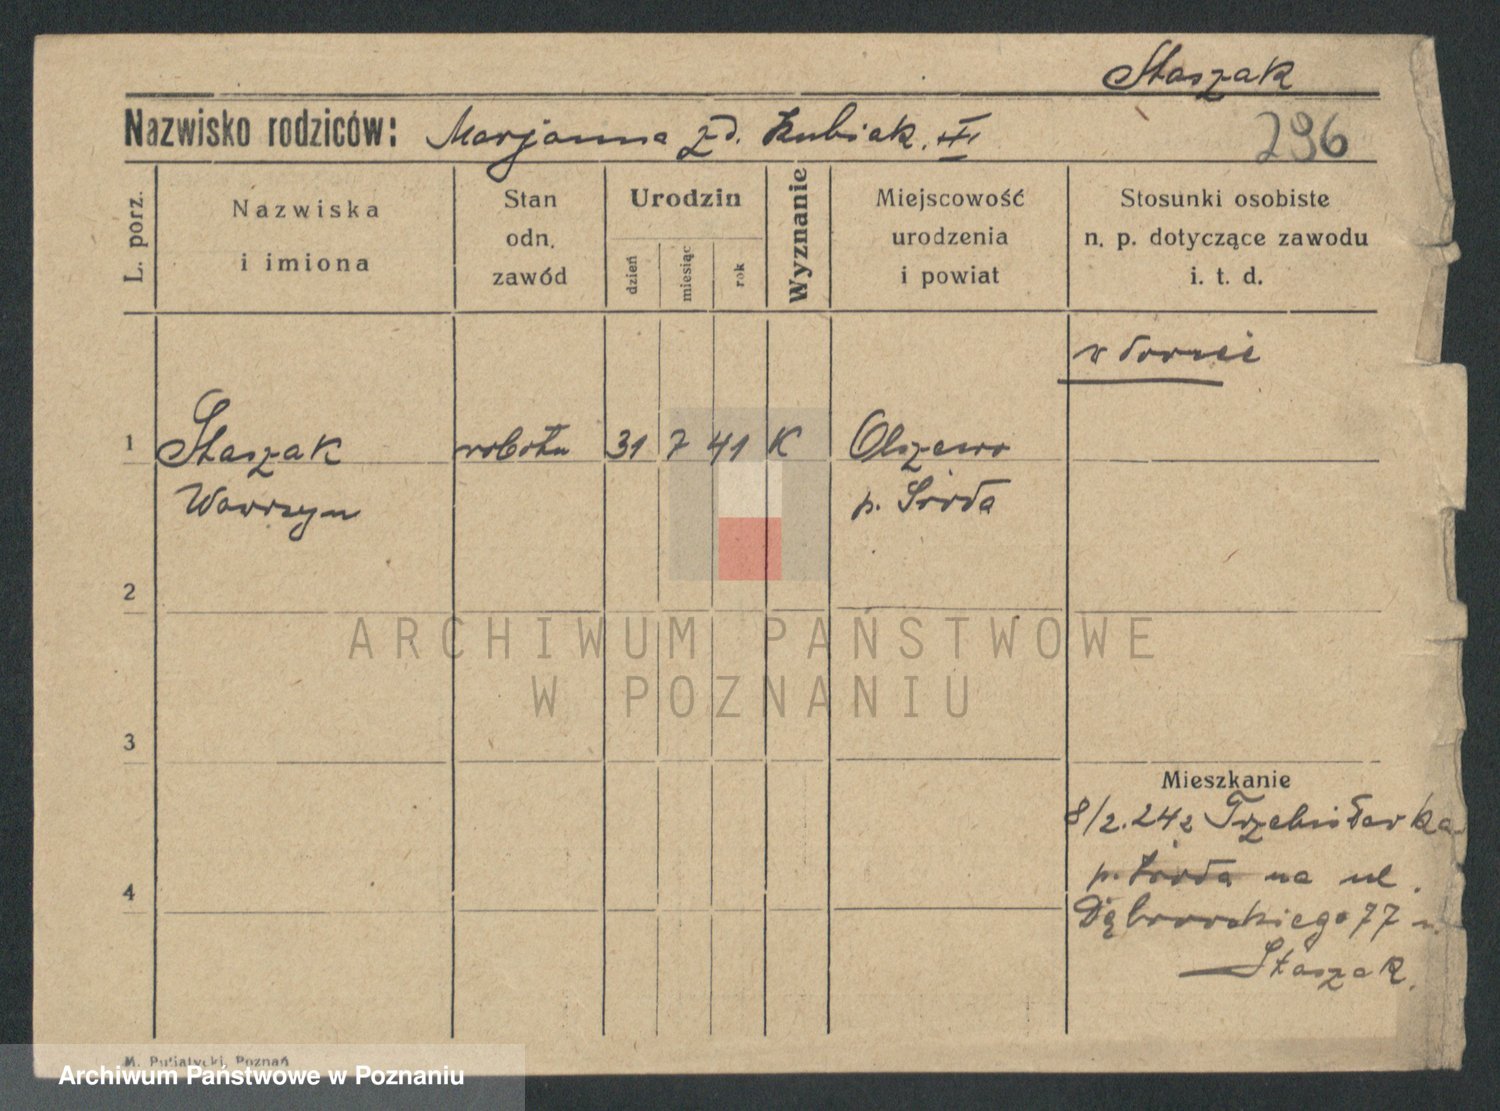 Staszak
Nazwisko rodziców: Marjanna zd. Kubiak. VI
296
L. porz.
Nazwiska
i imiona
Stan
odn.
zawód
Urodzin
dzień
miesiąc
rok
Wyznanie
Miejscowość
urodzenia
i powiat
Stosunki osobiste
n. p. dotyczące zawodu
i. t. d.
1
Staszak
Wawrzyn
robotn
31 7 41 K
Olszewo
p. Środa
2
3
4
Mieszkanie
8/2.242 Trzebisławka
p. Środa na ul.
Dąbrowskiego 77 u.
Staszak.
M. Putiatycki, Poznań
ARCHIWUM PAŃSTWOWE
W POZNANIU
Archiwum Państwowe w Poznaniu